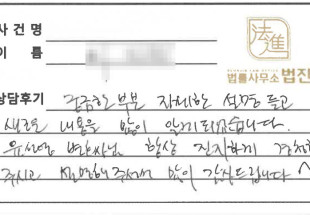 사 건 명
이 름
法進
법률사무소 법진
상담후기 궁금한 부분 자세한 설명 듣고
새로운 내용을 많이 알게되었습니다.
유선경 변호사님 항상 진지하게 경청해
주시고 설명해주셔서 많이 감사드립니다 ^